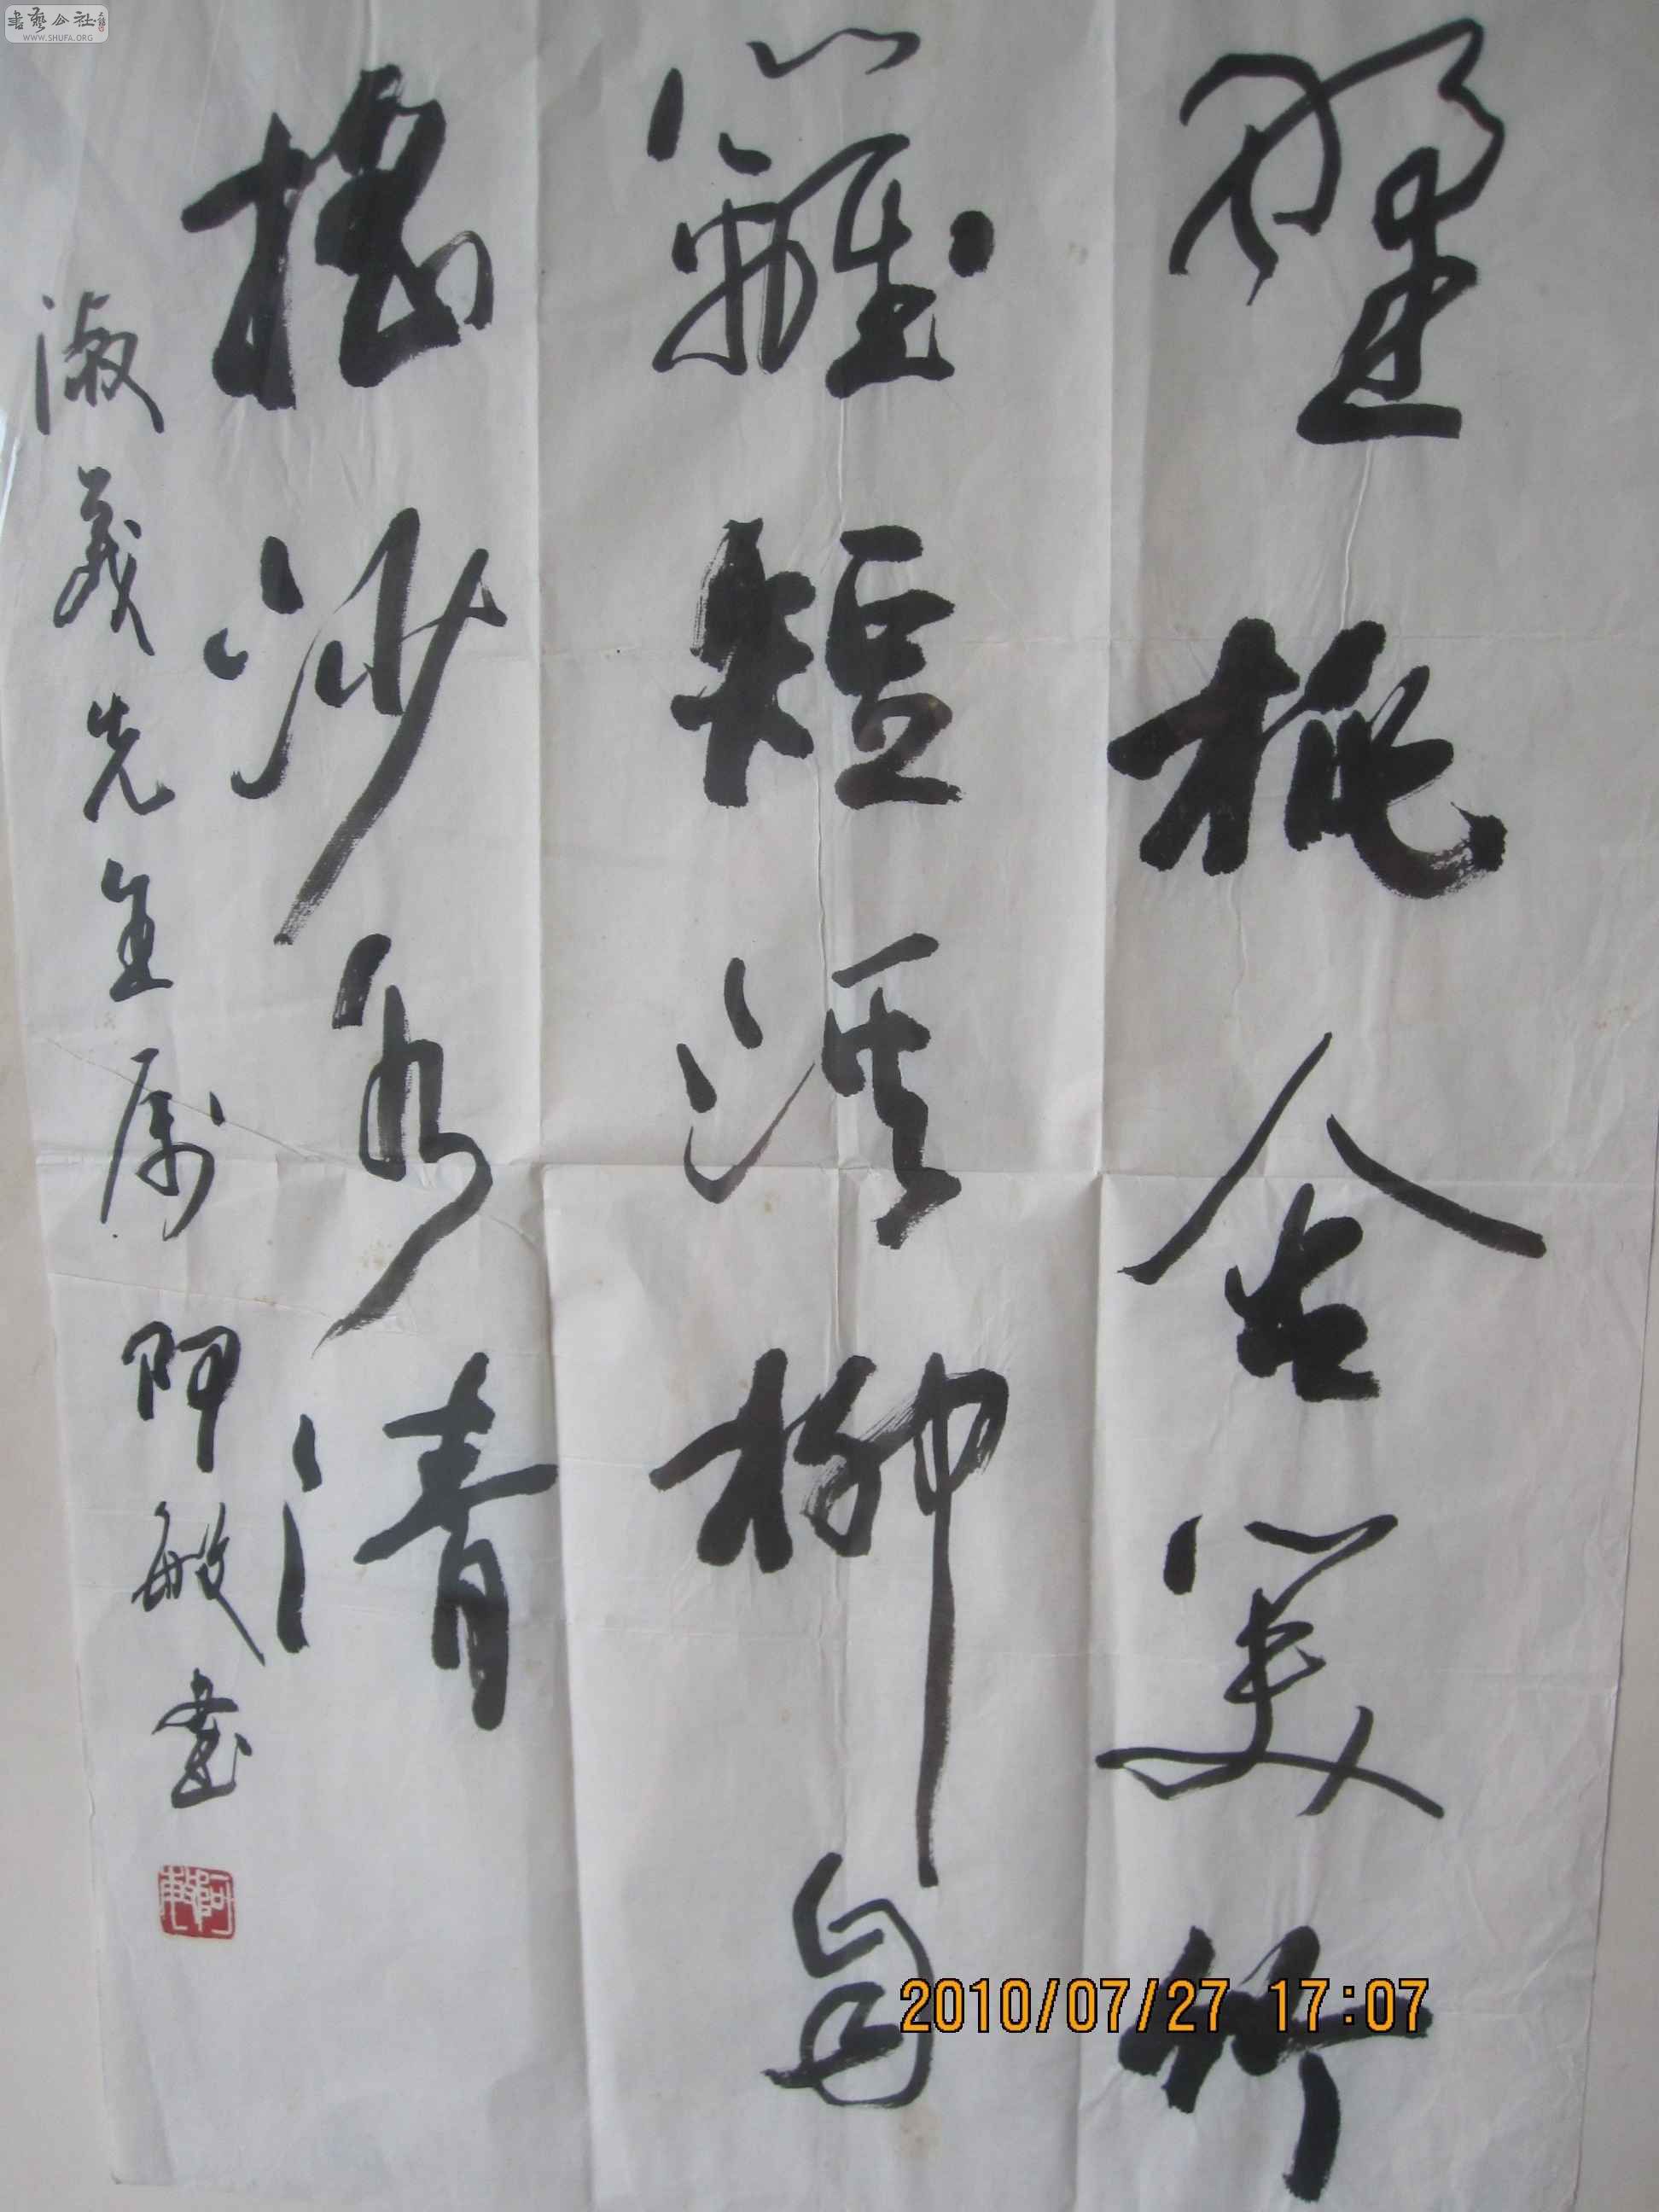 野桃含笑竹
籬短溪柳自
搖沙水清
淑義先生属 阿敏書
2010/07/27 17:07
書藝公社
WWW.SHUFA.ORG